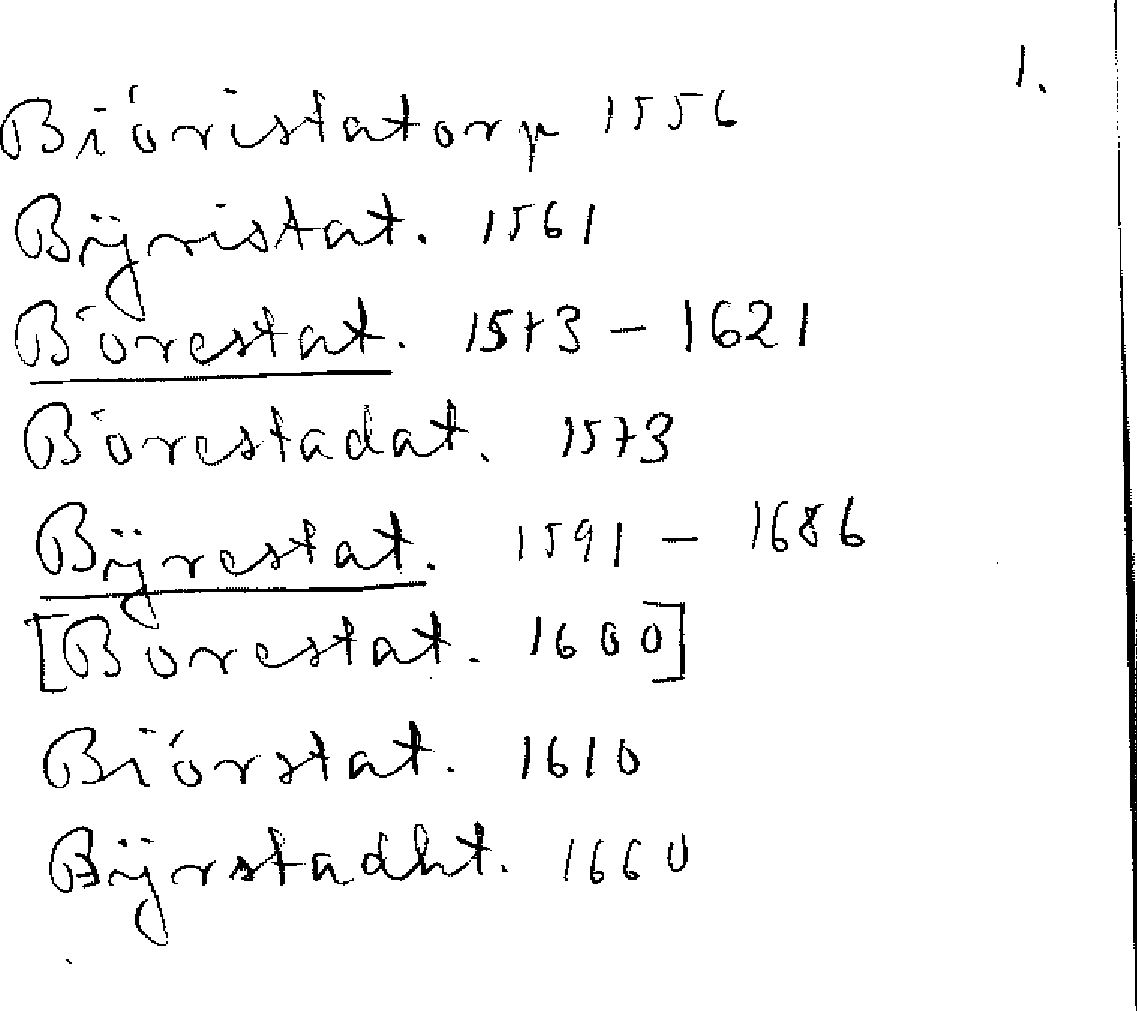 1.
Biöristatorp 1556
Bijristat. 1561
Börestat. 1573 – 1621
Börestadat. 1573
Bijrestat. 1591 – 1686
[Borestat. 1600]
Biörstat. 1610
Bijrstadht. 1660